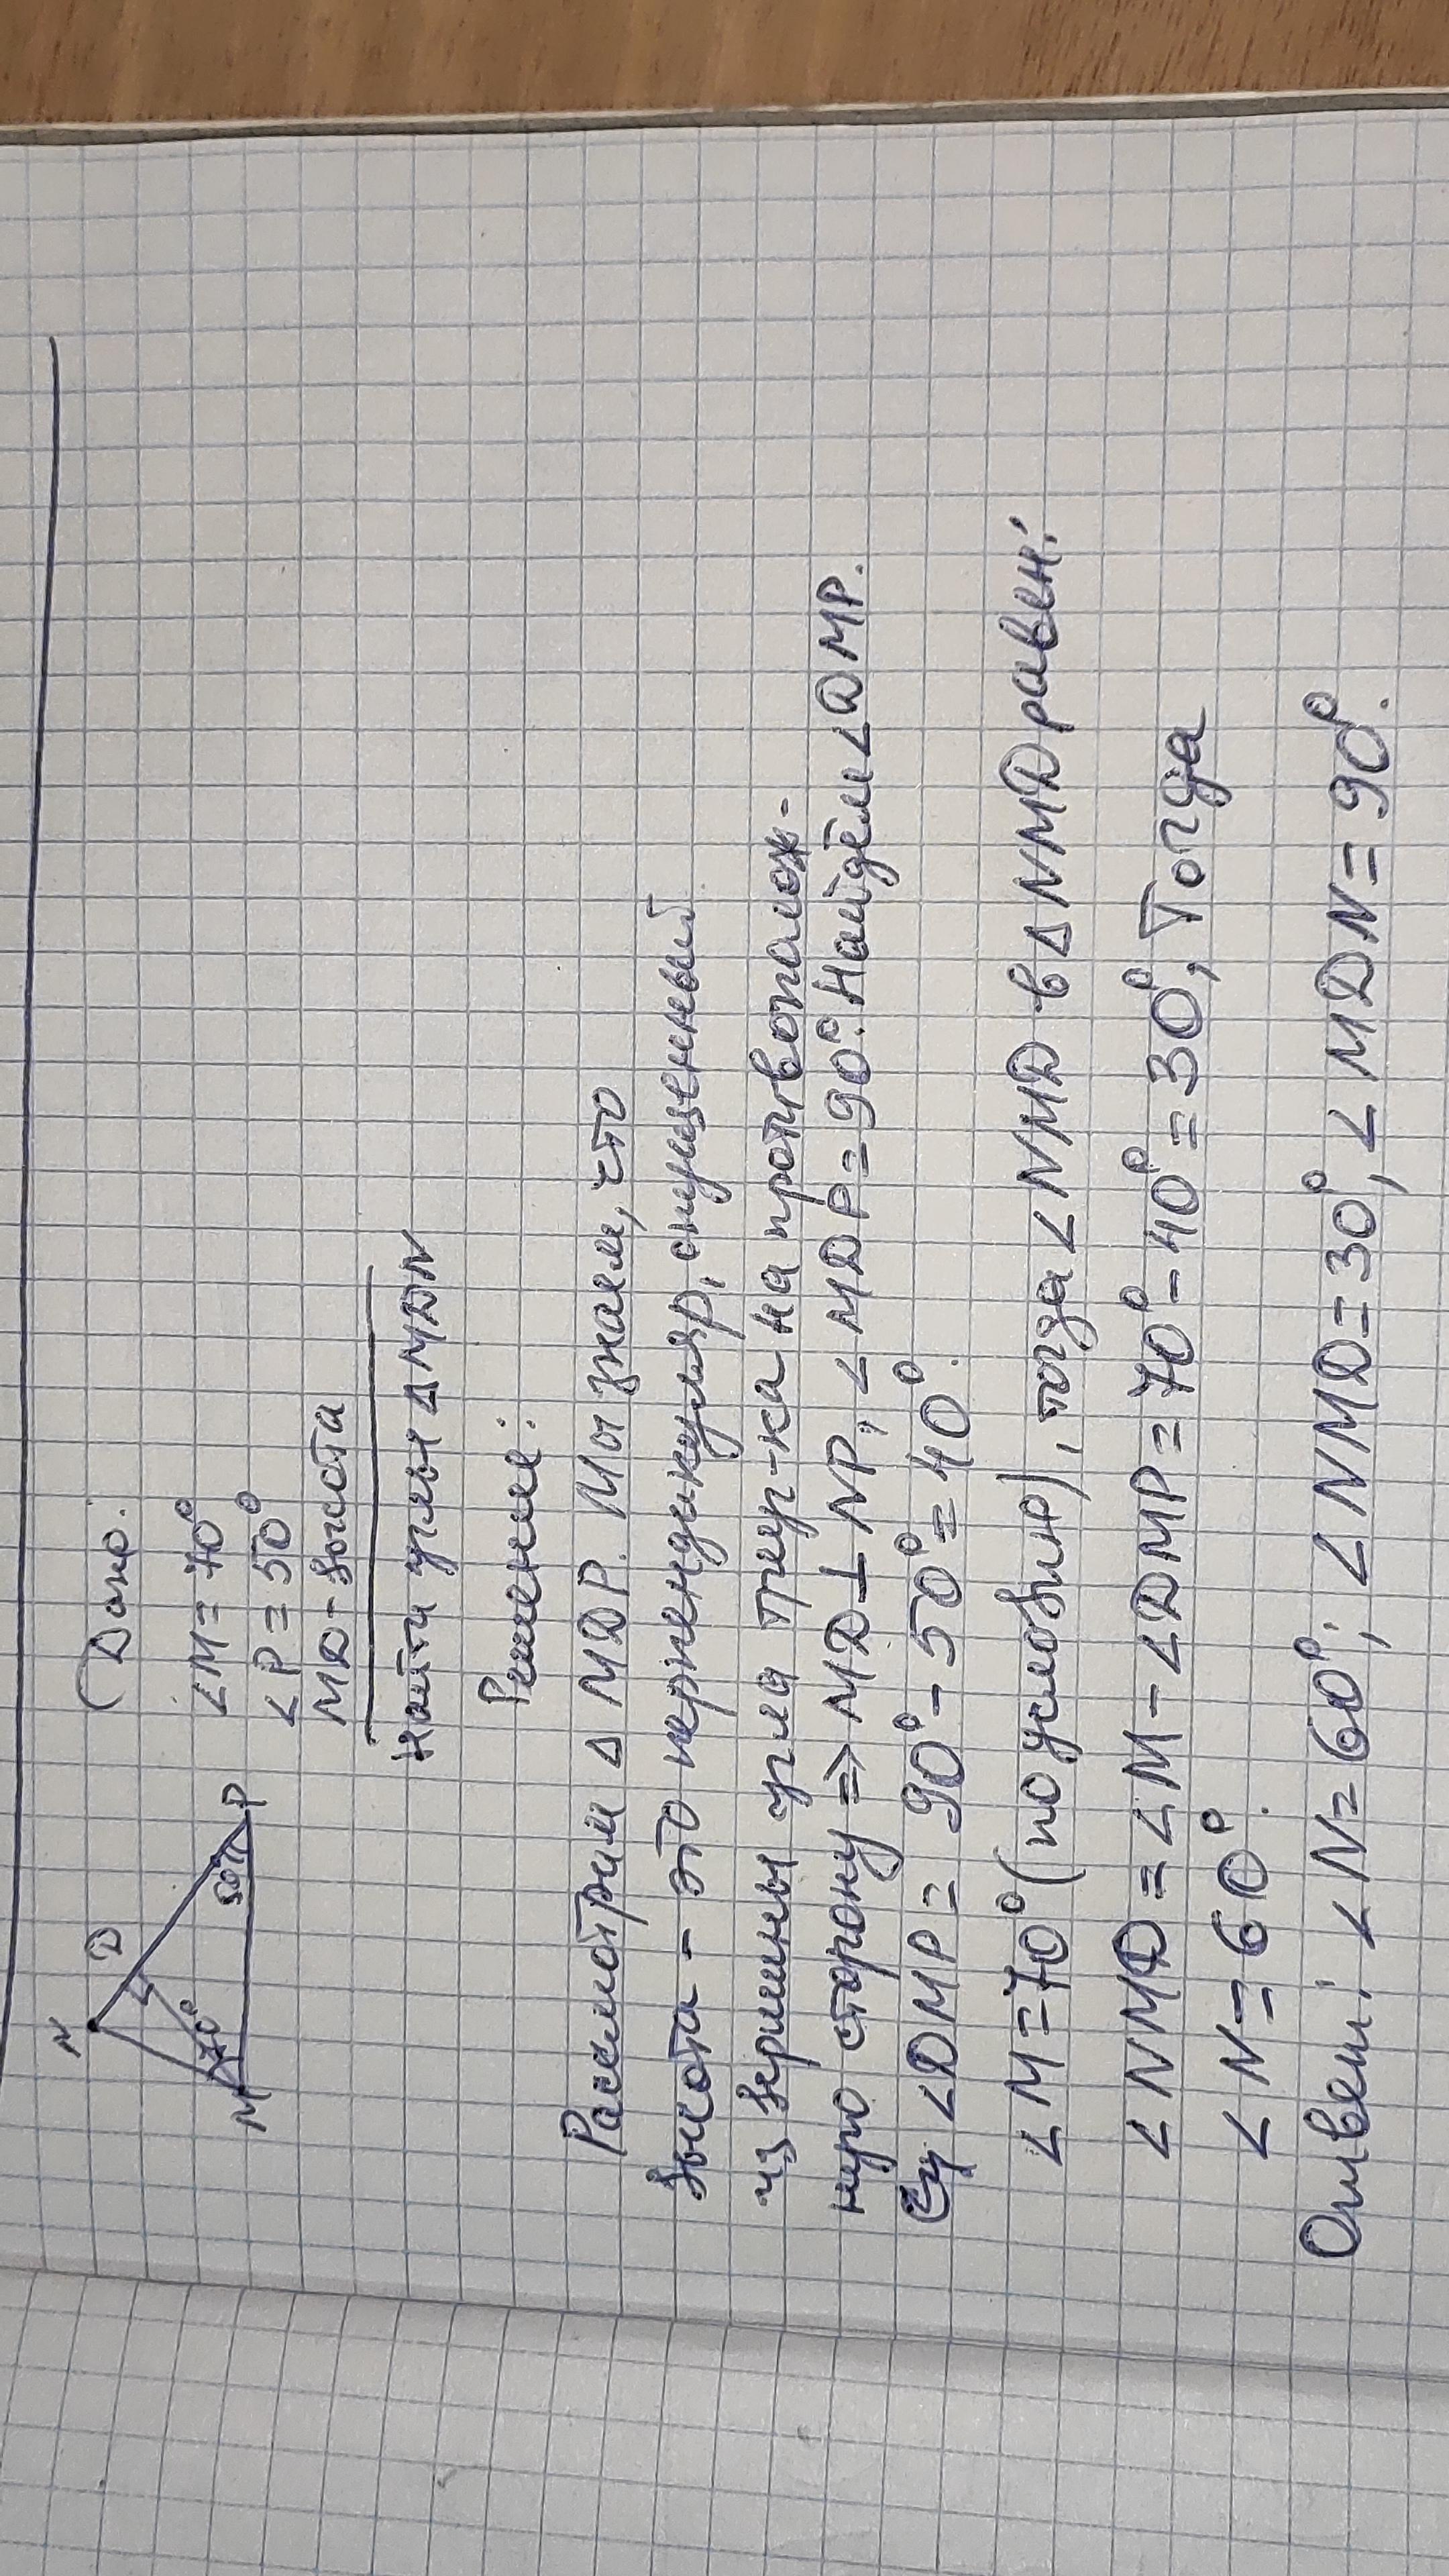 N
D
M
70°
50°
P
Дано:
∠M = 70°
∠P = 50°
MD - высота
Найти углы Δ MDN
Решение:
Рассмотрим Δ MDP. Мы знаем, что
высота - это перпендикуляр, опущенный
из вершины угла треу-ка на противополож-
ную сторону ⇒ MD ⊥ NP, ∠ MDP = 90°. Найдём ∠ DMP.
∠DMP = 90° - 50° = 40°.
∠ M = 70° (по условию), тогда ∠ NMD в Δ NMD равен:
∠ NMD = ∠ M - ∠DMP = 70° - 40° = 30°, Тогда
∠ N = 60°.
Ответ: ∠ N = 60°; ∠ NMD = 30°, ∠ MDN = 90°.